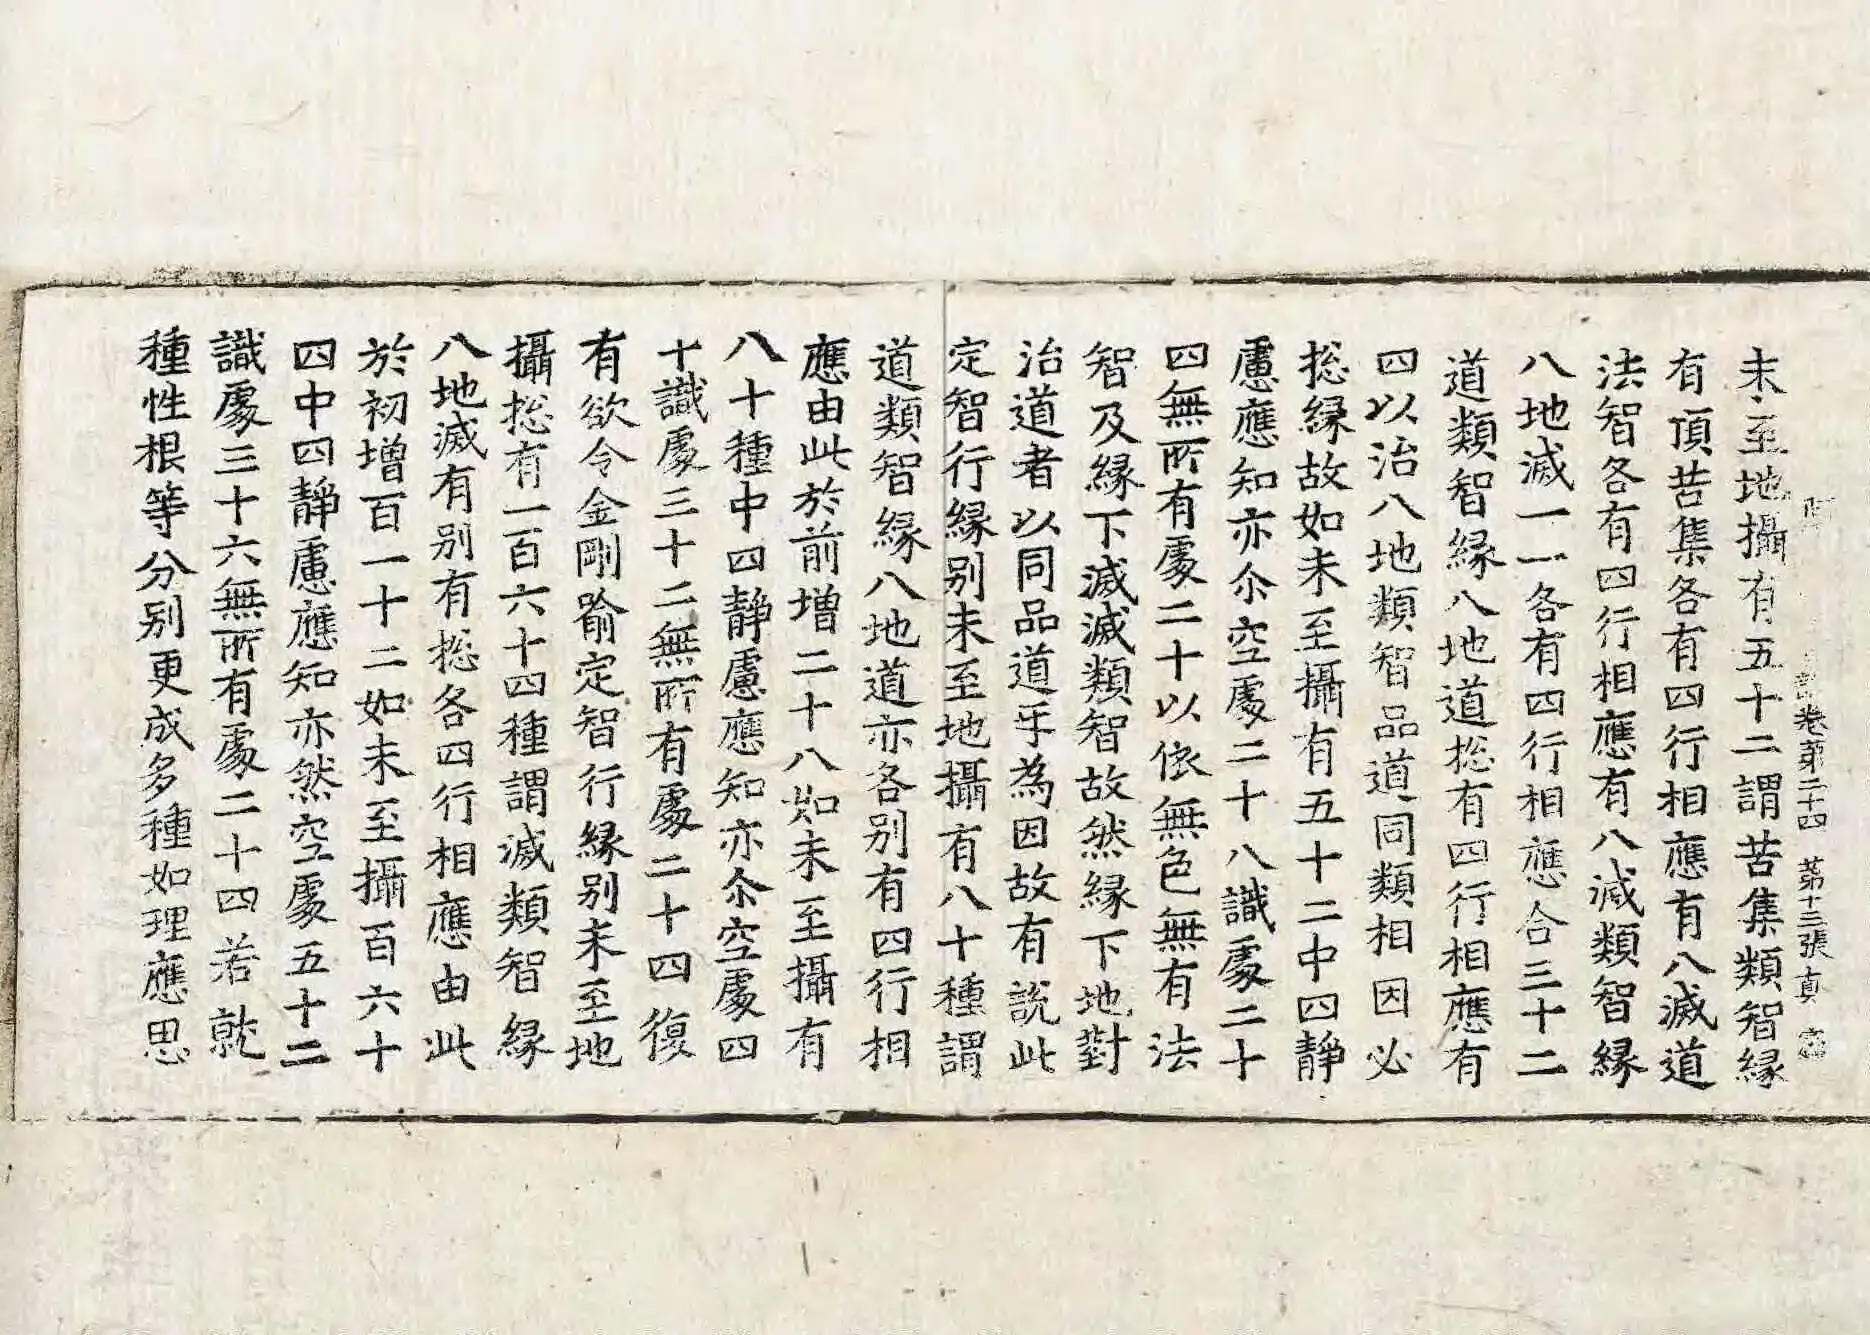 未至地攝有五十二謂苦集類智緣
卷第二十四 第十三張
有頂苦集各有四行相應有八滅道
法智各有四行相應有八滅類智緣
八地滅一一各有四行相應合三十二
道類智緣八地道捴有四行相應有
四以治八地類智品道同類相因必
捴緣故如未至攝有五十二中四靜
慮應知亦尒空處二十八識處二十
四無所有處二十以依無色無有法
智及緣下滅滅類智故然緣下地對
治道者以同品道乎為因故有說此
定智行緣別未至地攝有八十種謂
道類智緣八地道亦各別有四行相
應由此於前增二十八如未至攝有
八十種中四靜慮應知亦尒空處四
十識處三十二無所有處二十四復
有欲令金剛喻定智行緣別未至地
攝捴有一百六十四種謂滅類智緣
八地滅有別有捴各四行相應由此
於初增百一十二如未至攝百六十
四中四靜慮應知亦然空處五十二
識處三十六無所有處二十四若就
種性根等分別更成多種如理應思